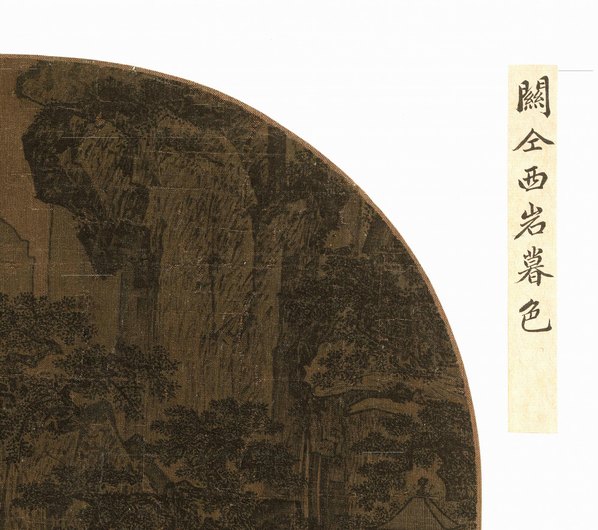 關仝西岩暮色